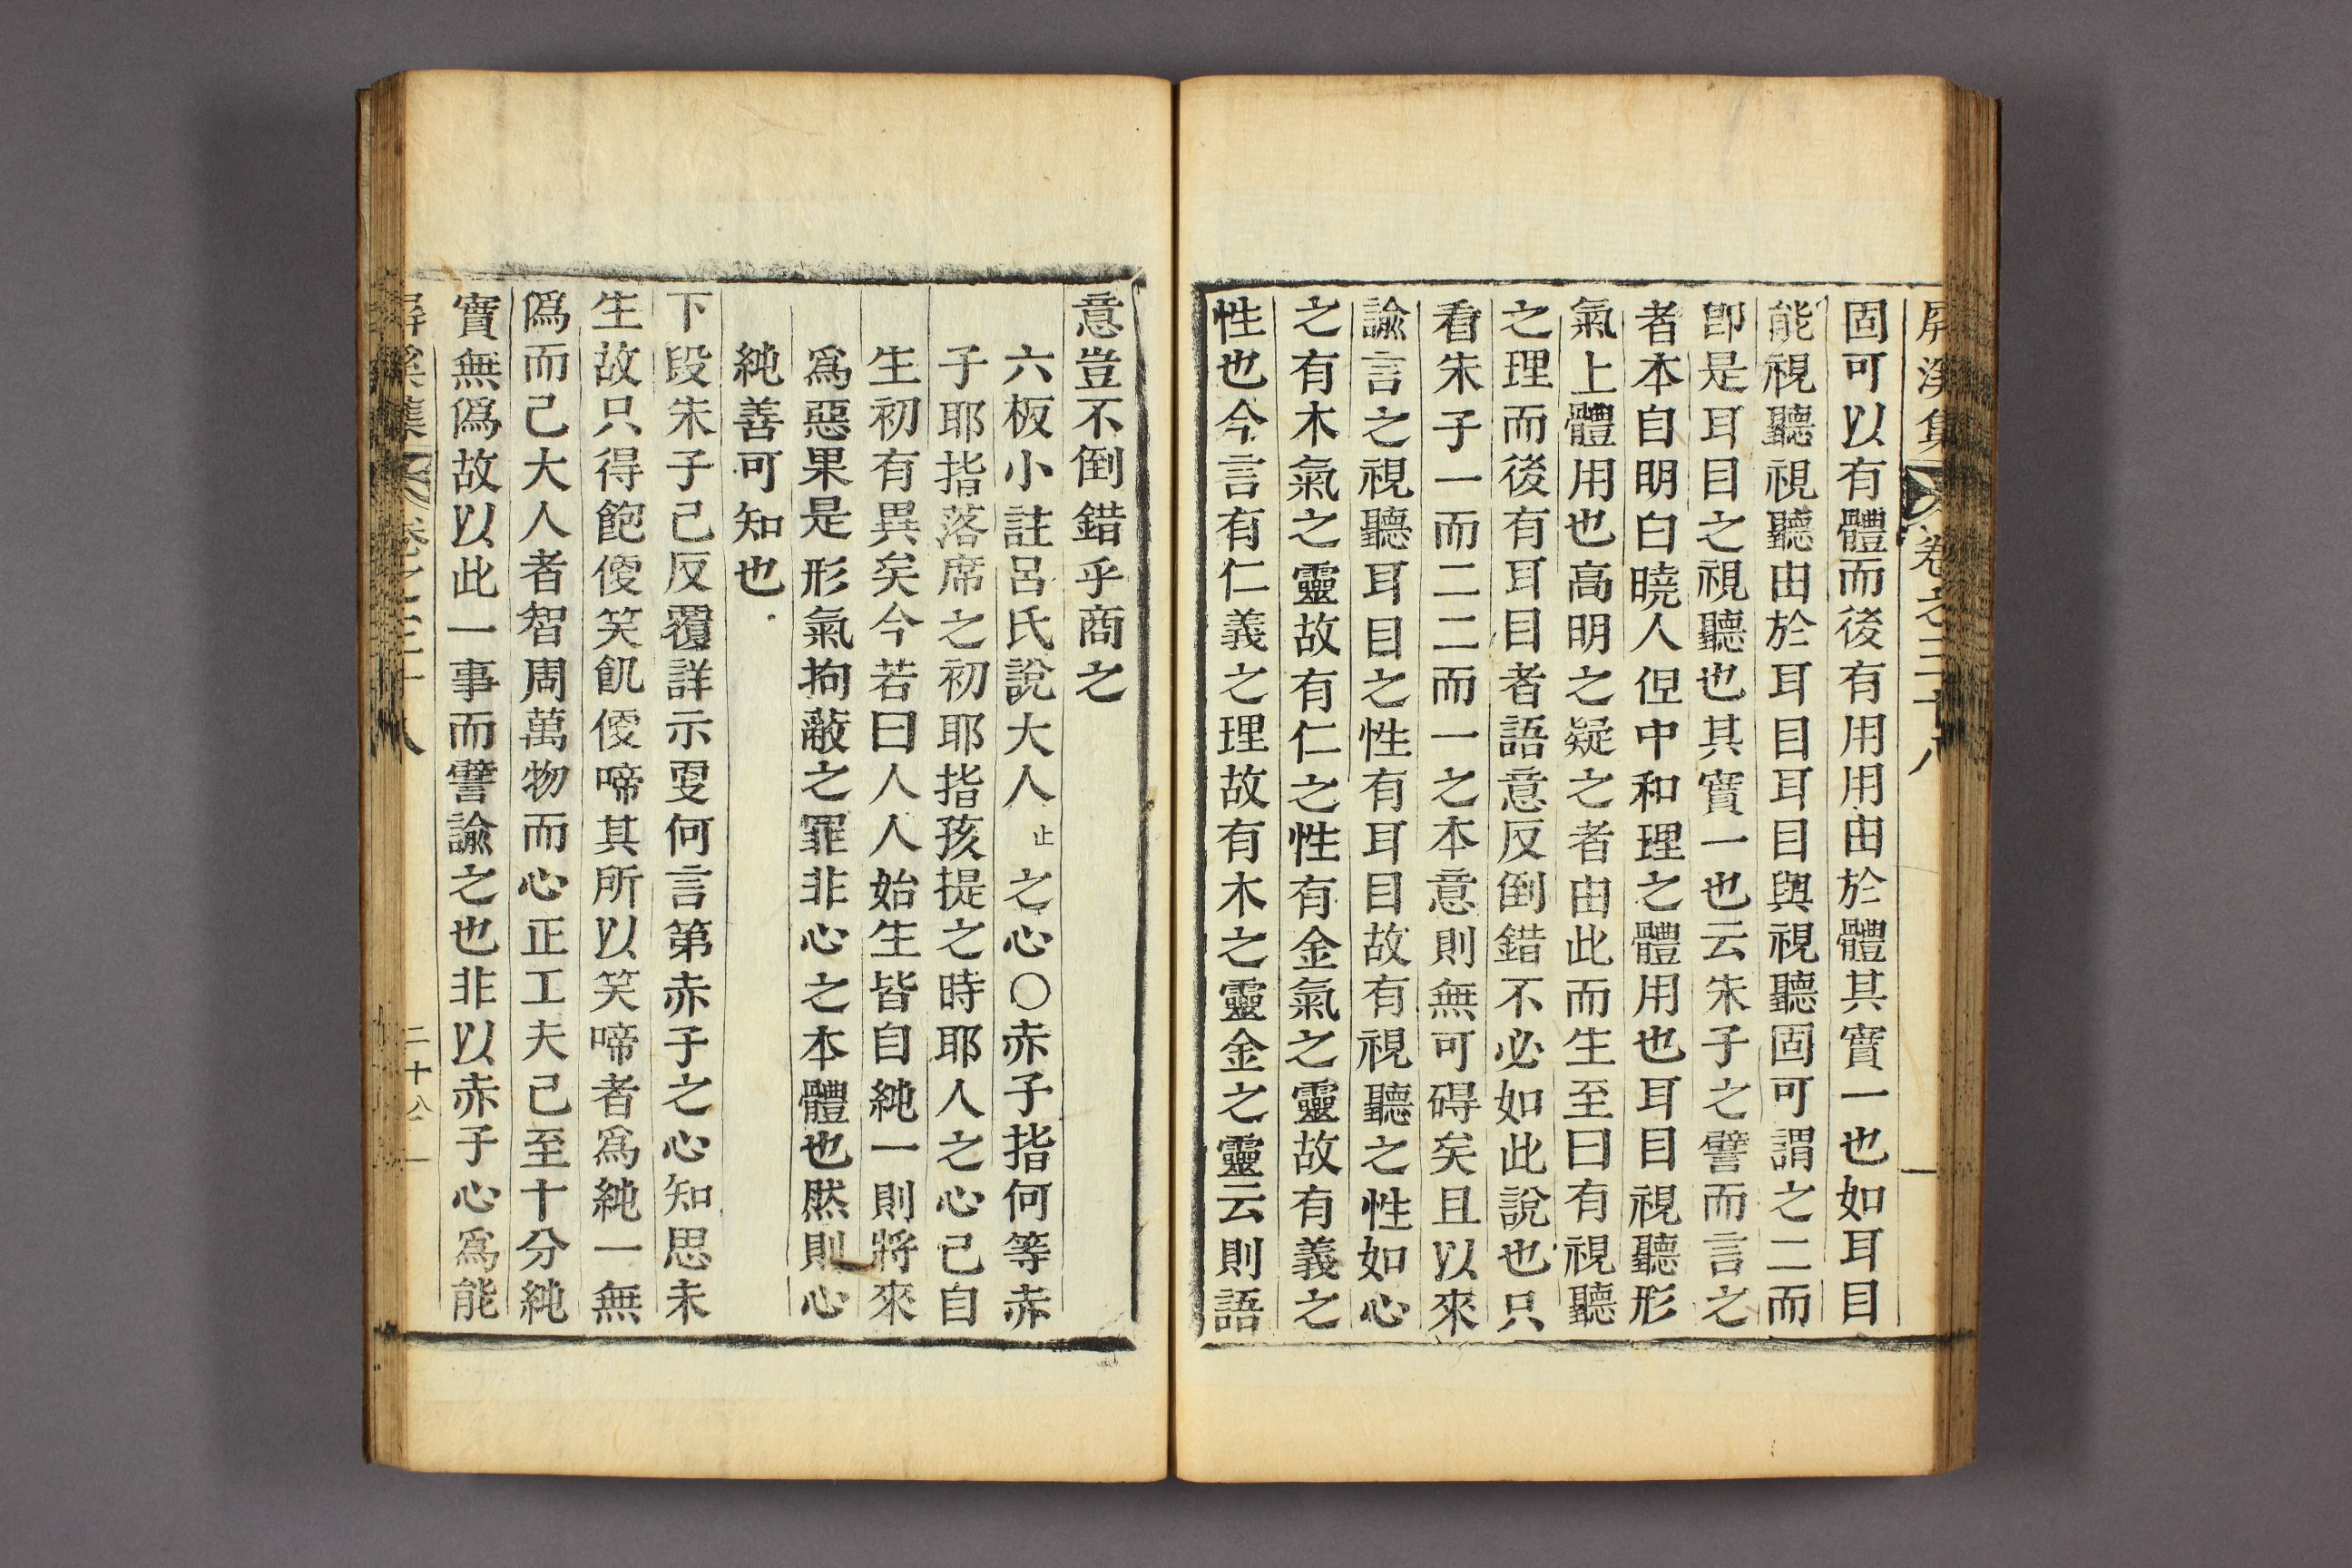 屛溪集 卷之三十八
固可以有體而後有用用由於體其實一也如耳目
能視聽視聽由於耳目耳目與視聽固可謂之二而
卽是耳目之視聽也其實一也云朱子之譬而言之
者本自明白曉人但中和理之體用也耳目視聽形
氣上體用也高明之疑之者由此而生至曰有視聽
之理而後有耳目者語意反倒錯不必如此說也只
看朱子一而二二而一之本意則無可碍矣且以來
諭言之視聽耳目之性有耳目故有視聽之性如心
之有木氣之靈故有仁之性有金氣之靈故有義之
性也今言有仁義之理故有木之靈金之靈云則語
意豈不倒錯乎商之
六板小註呂氏說大人止之心○赤子指何等赤
子耶指落席之初耶指孩提之時耶人之心已自
生初有異矣今若曰人人始生皆自純一則將來
爲惡果是形氣拘蔽之罪非心之本體也然則心
純善可知也
下段朱子已反覆詳示更何言第赤子之心知思未
生故只得飽便笑飢便啼其所以笑啼者爲純一無
僞而已大人者智周萬物而心正工夫已至十分純
實無僞故以此一事而譬諭之也非以赤子心爲能
屛溪集 卷之三十八 二十八